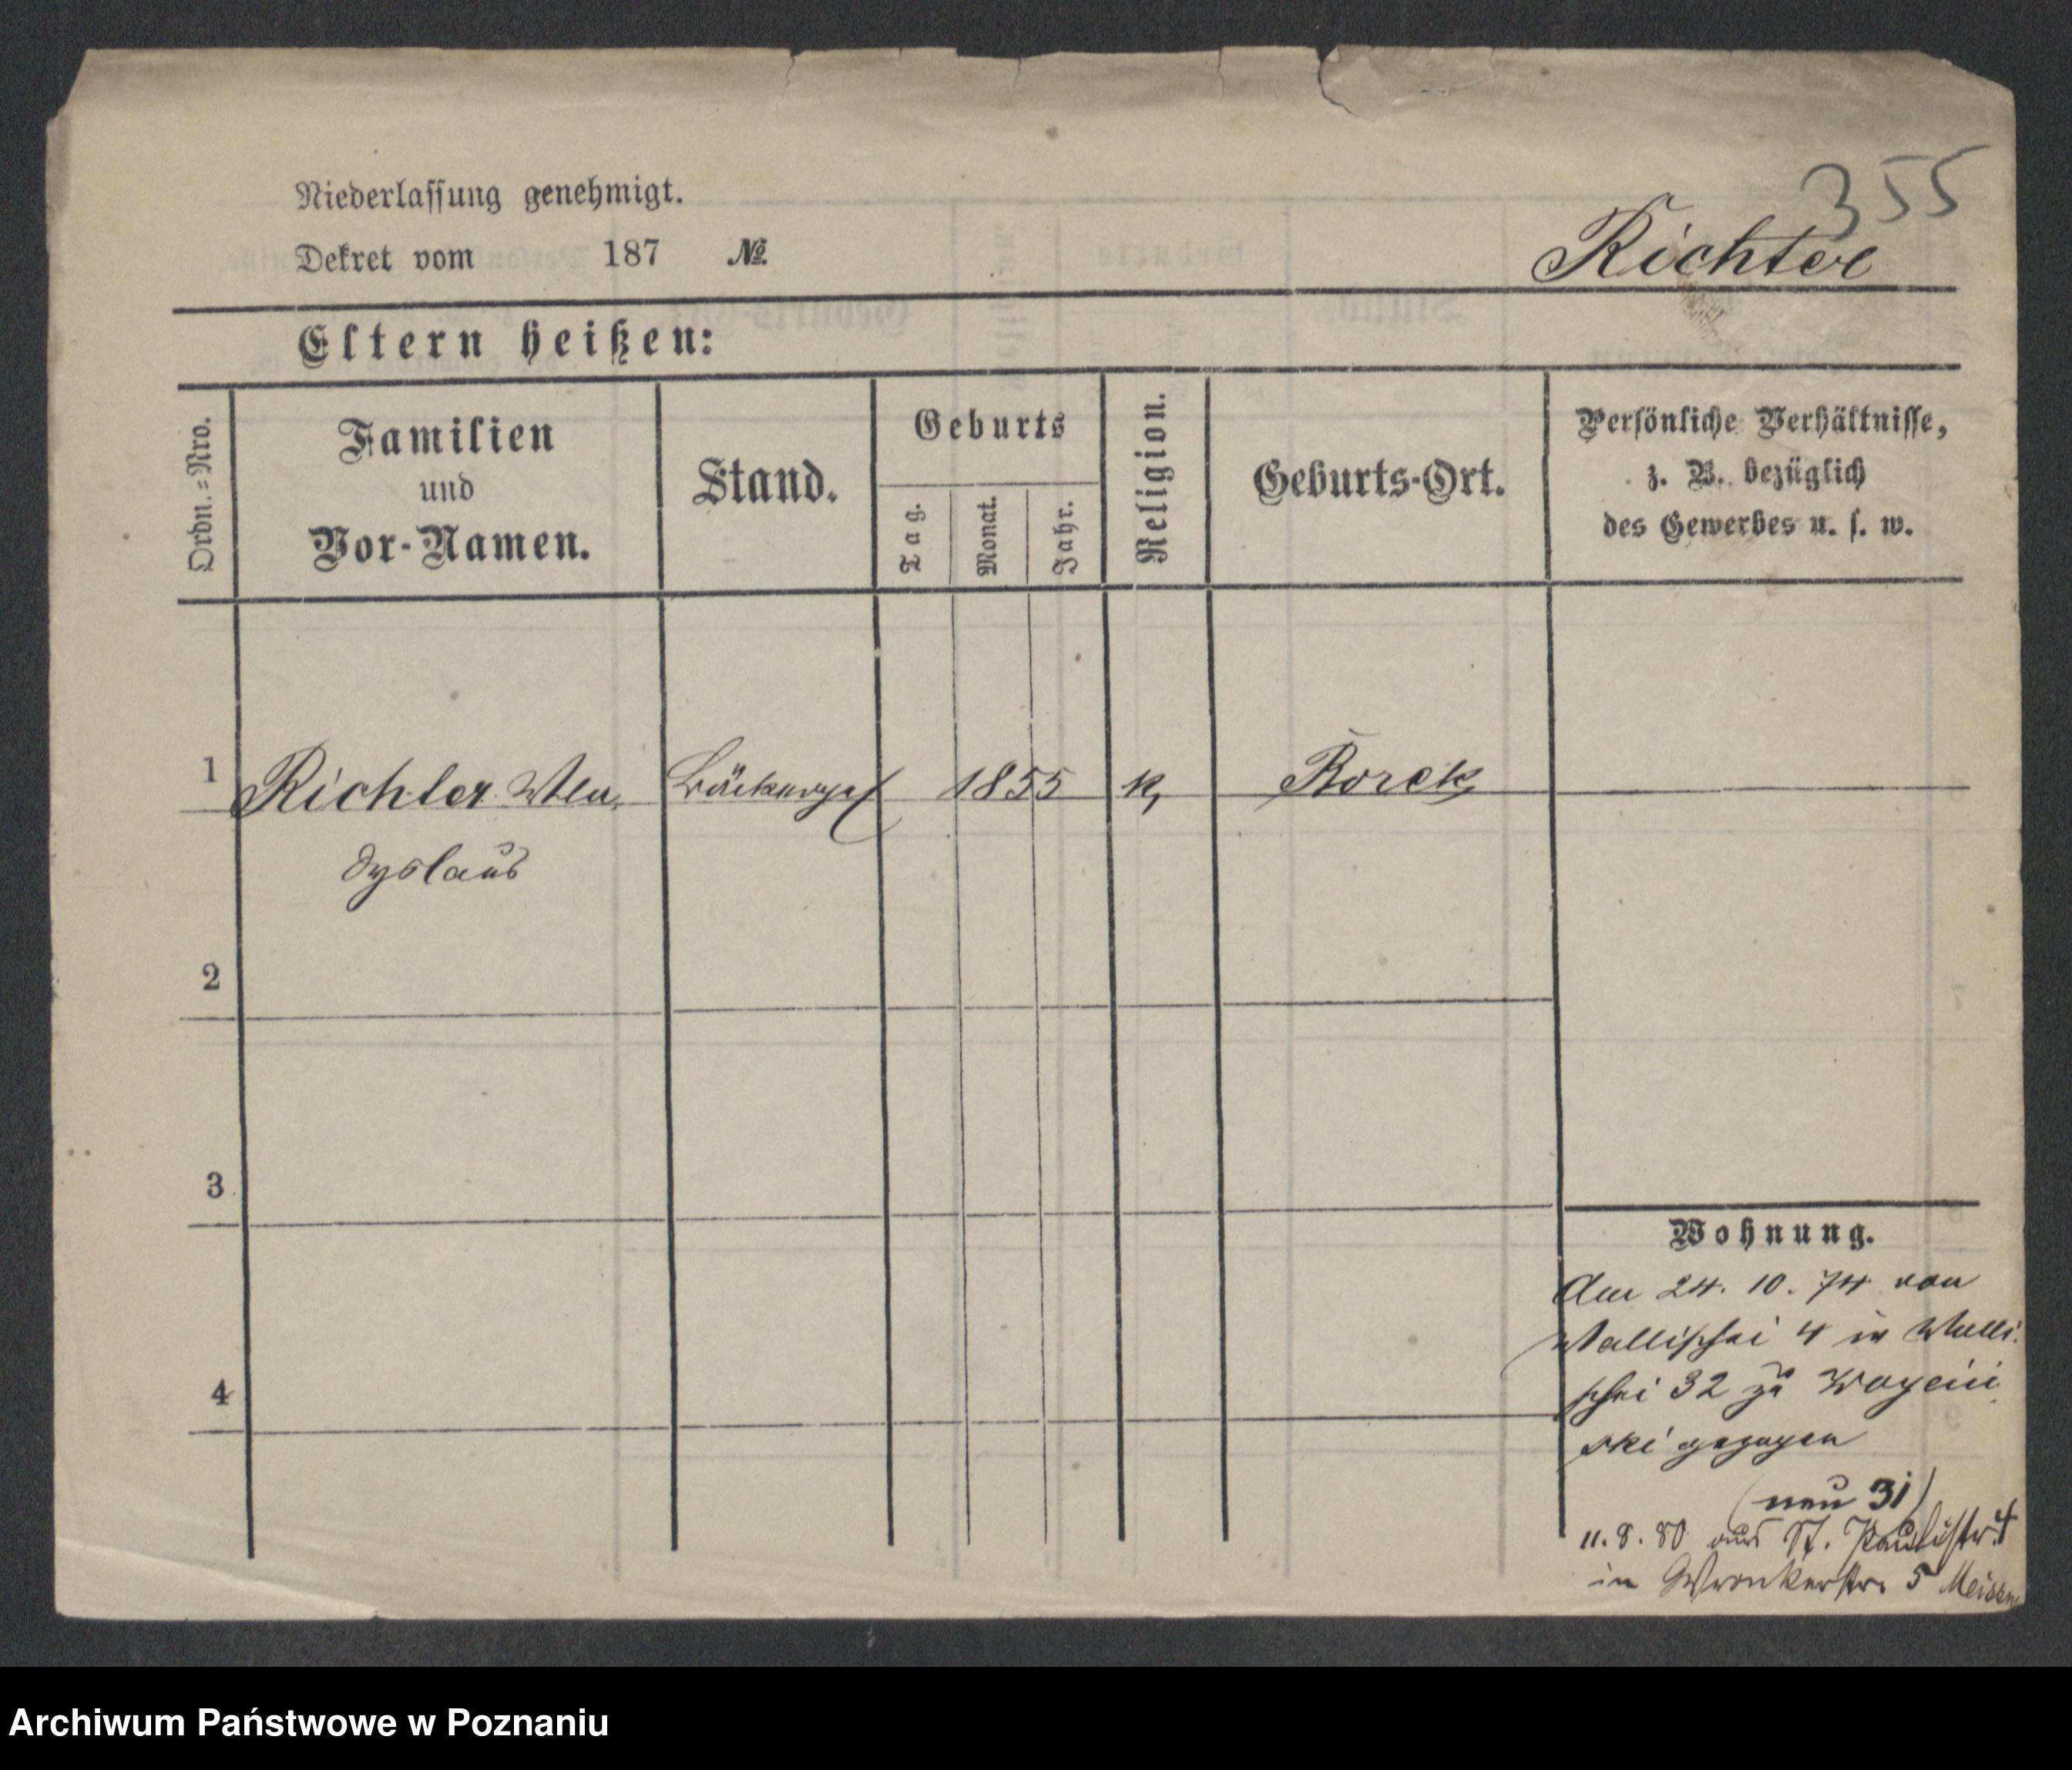 355
Niederlassung genehmigt.
Dekret vom 187 №
Richter
Eltern heißen:
Ordn.=Nro.
Familien
und
Vor-Namen.
Stand.
Geburts
Tag.
Monat.
Jahr.
Religion.
Geburts-Ort.
Persönliche Verhältnisse,
z. B. bezüglich
des Gewerbes u. s. w.
1 Richter Wla, Bäckerges 1855 k, Borek
dyslaus
2
3
4
Wohnung.
Am 24. 10. 74 von
Wallischei 4 in Walli.
schei 32 zu
ski gezogen
(neu 31)
11. 8. 80 aus St. Paulistr. 4
in Wronkerstr. 5
Archiwum Państwowe w Poznaniu